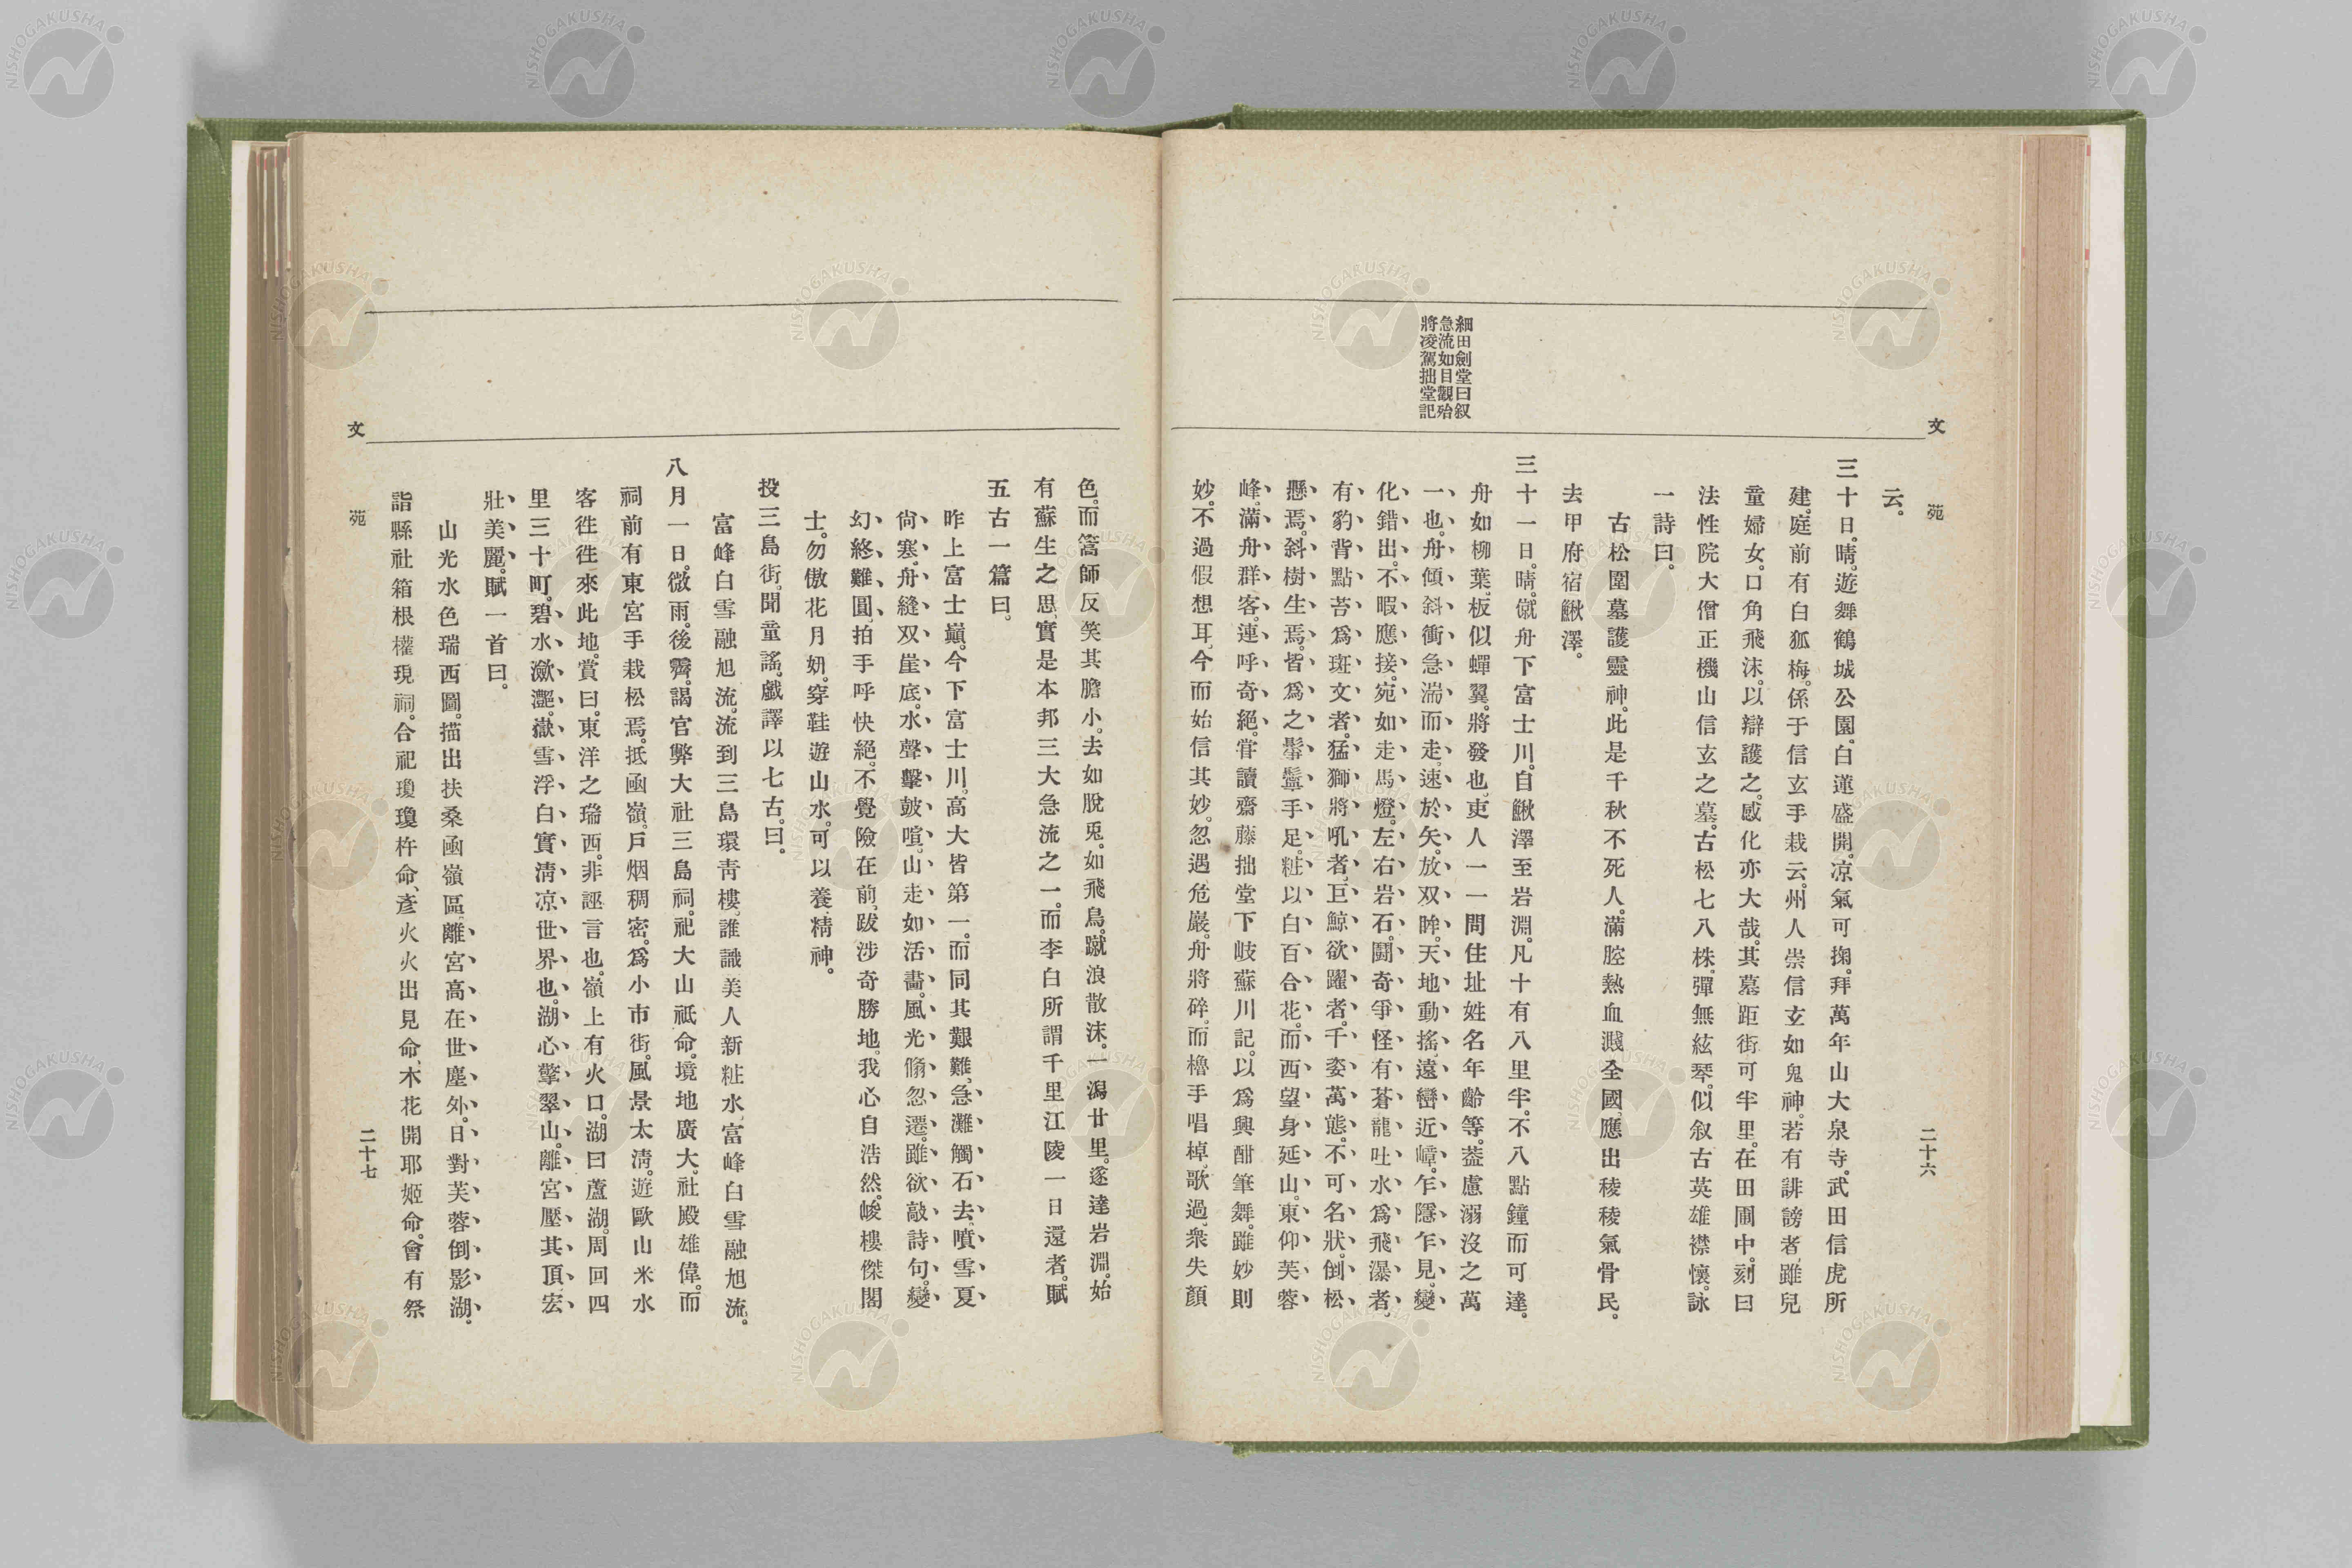 文苑
二十六
細田劍堂曰叙
急流如目觀殆
將凌駕拙堂記
云。
三十日。晴。遊舞鶴城公園。白蓮盛開。凉氣可掬。拜萬年山大泉寺。武田信虎所
建。庭前有白狐梅。係于信玄手栽云。州人崇信玄如鬼神。若有誹謗者、雖兒
童婦女。口角飛沫。以辯護之。感化亦大哉。其墓距街可半里。在田圃中。刻曰
法性院大僧正機山信玄之墓。古松七八株。彈無絃琴。似叙古英雄襟懷。詠
一詩曰。
古松圍墓護靈神。此是千秋不死人。滿腔熱血濺全國。應出稜稜氣骨民。
去甲府宿鰍澤。
三十一日。晴。僦舟下富士川。自鰍澤至岩淵。凡十有八里半。不八點鐘而可達。
舟如柳葉。板似蟬翼。將發也。吏人一一問住址姓名年齡等。葢慮溺沒之萬
一也。舟傾斜衝急湍而走。速於矢。放双眸。天地動搖。遠巒近嶂。乍隱乍見。變
化錯出。不暇應接。宛如走馬燈。左右岩石。鬪奇爭怪。有蒼龍吐水爲飛瀑者。
有豹背點苔爲斑文者。猛獅將吼者。巨鯨欲躍者。千姿萬態。不可名狀。倒松
懸焉。斜樹生焉。皆爲之鬈鬟手足。粧以白百合花。而西望身延山。東仰芙蓉
峰。滿舟群客。連呼奇絕。甞讀齋藤拙堂下岐蘇川記。以爲興酣筆舞。雖妙則
妙。不過假想耳。今而始信其妙。忽遇危巖。舟將碎。而櫓手唱棹歌過。衆失顏
色。而篙師反笑其膽小。去如脫兎。如飛鳥。蹴浪散沫。一瀉廿里。遂達岩淵。始
有蘇生之思。實是本邦三大急流之一。而李白所謂千里江陵一日還者。賦
五古一篇曰。
昨上富士巓。今下富士川。高大皆第一。而同其艱難。急灘觸石去。噴雪夏
尙寒。舟縫双崖底。水聲擊鼓喧。山走如活畫。風光倏忽遷。雖欲敲詩句。變
幻終難圓。拍手呼快絕。不覺險在前。跋涉奇勝地。我心自浩然。峻樓傑閣
士。勿傲花月妍。穿鞋遊山水。可以養精神。
投三島街。聞童謠。戲譯以七古。曰。
富峰白雪融旭流。流到三島環靑樓。誰識美人新粧水。富峰白雪融旭流。
八月一日。微雨。後霽。謁官弊大社三島祠。祀大山祇命。境地廣大。社殿雄偉。而
祠前有東宮手栽松焉。抵函嶺。戶烟稠密。爲小市街。風景太淸。遊歐山米水
客徃徃來此地。賞曰。東洋之瑞西。非誣言也。嶺上有火口。湖曰蘆湖。周回四
里三十町。碧水瀲灔。嶽雪浮白。實淸凉世界也。湖心擎翠山。離宮壓其頂。宏
壯美麗。賦一首曰。
山光水色瑞西圖。描出扶桑函嶺區。離宮高在世塵外。日對芙蓉倒影湖。
詣縣社箱根權現祠。合祀瓊瓊杵命、彥火火出見命、木花開耶姬命。會有祭
文苑
二十七